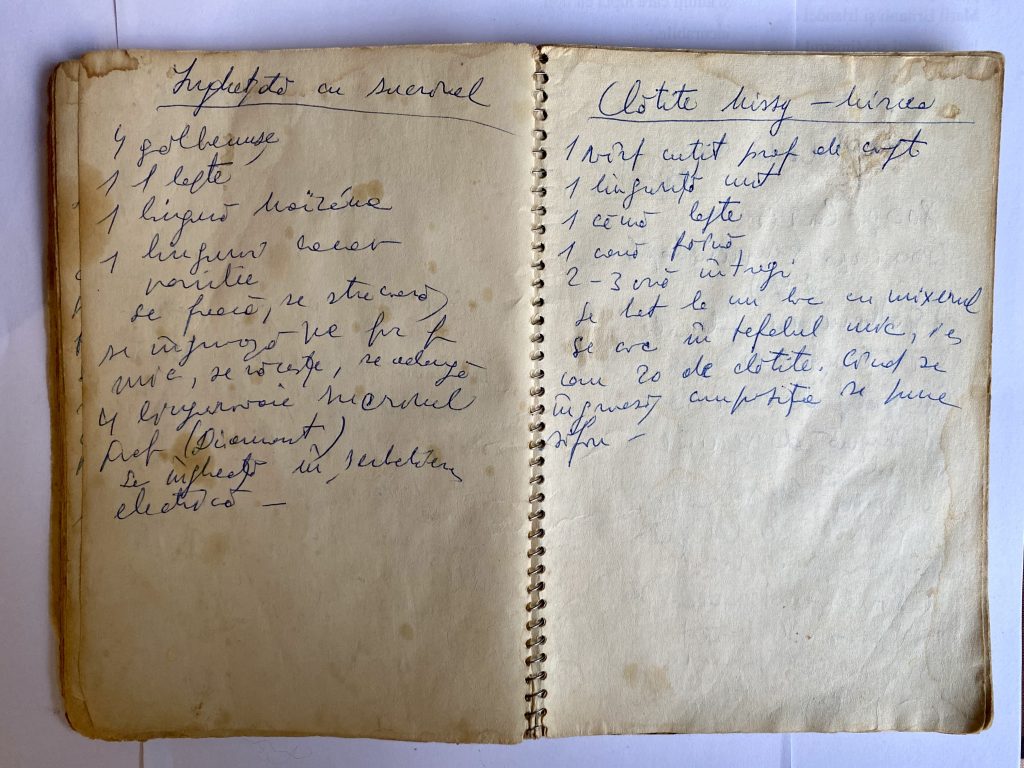 Înghețată cu sucrozel
4 gălbenușe
1 l lapte
1 lingură Maïzéna
1 lingură cacao
vanilie
se freacă, se strecoară,
se îngroașă pe foc f
mic, se răcește, se adaugă
4 lingurioaie sucrozel
Praf (Diamant)
Se îngheață în sorbetiera
electrică —
Clătite Missy – Mircea
1 vârf cuțit praf de copt
1 linguriță unt
1 cană lapte
1 cană făină
2-3 ouă întregi
Se bat la un loc cu mixerul
Se coc în tefalul mic, ies
cam 20 de clătite. Când se
îngroașă compoziția se pune
sifon —